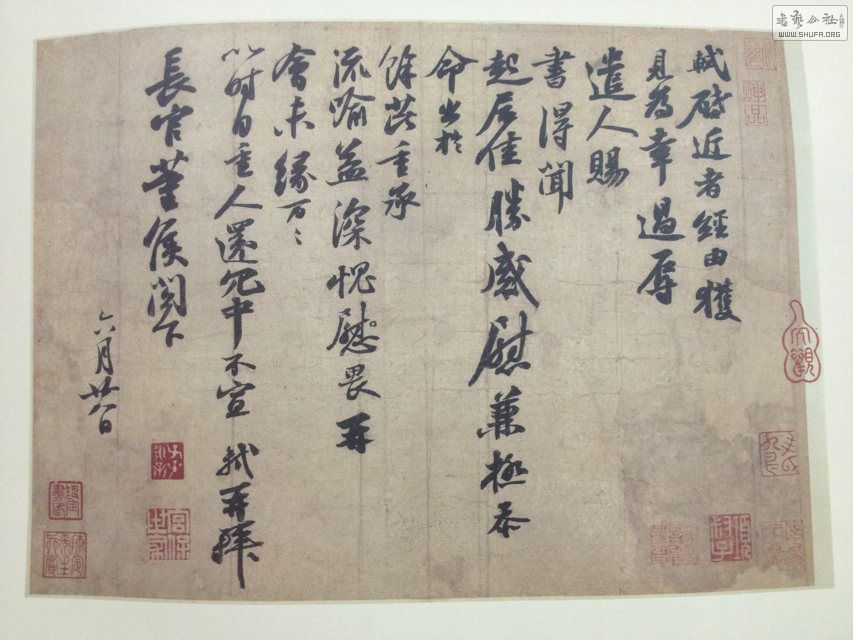 軾啟近者經由獲
見為幸過辱
遣人賜
書得聞
起居佳勝感慰兼極忝
命出於
餘芘重承
流喻益深愧慰畏再
會未緣万〻
以時自重人還冗中不宣 軾再拜
長官董侯閣下
六月廿八日
神品
書藝公社
WWW.SHUFA.ORG